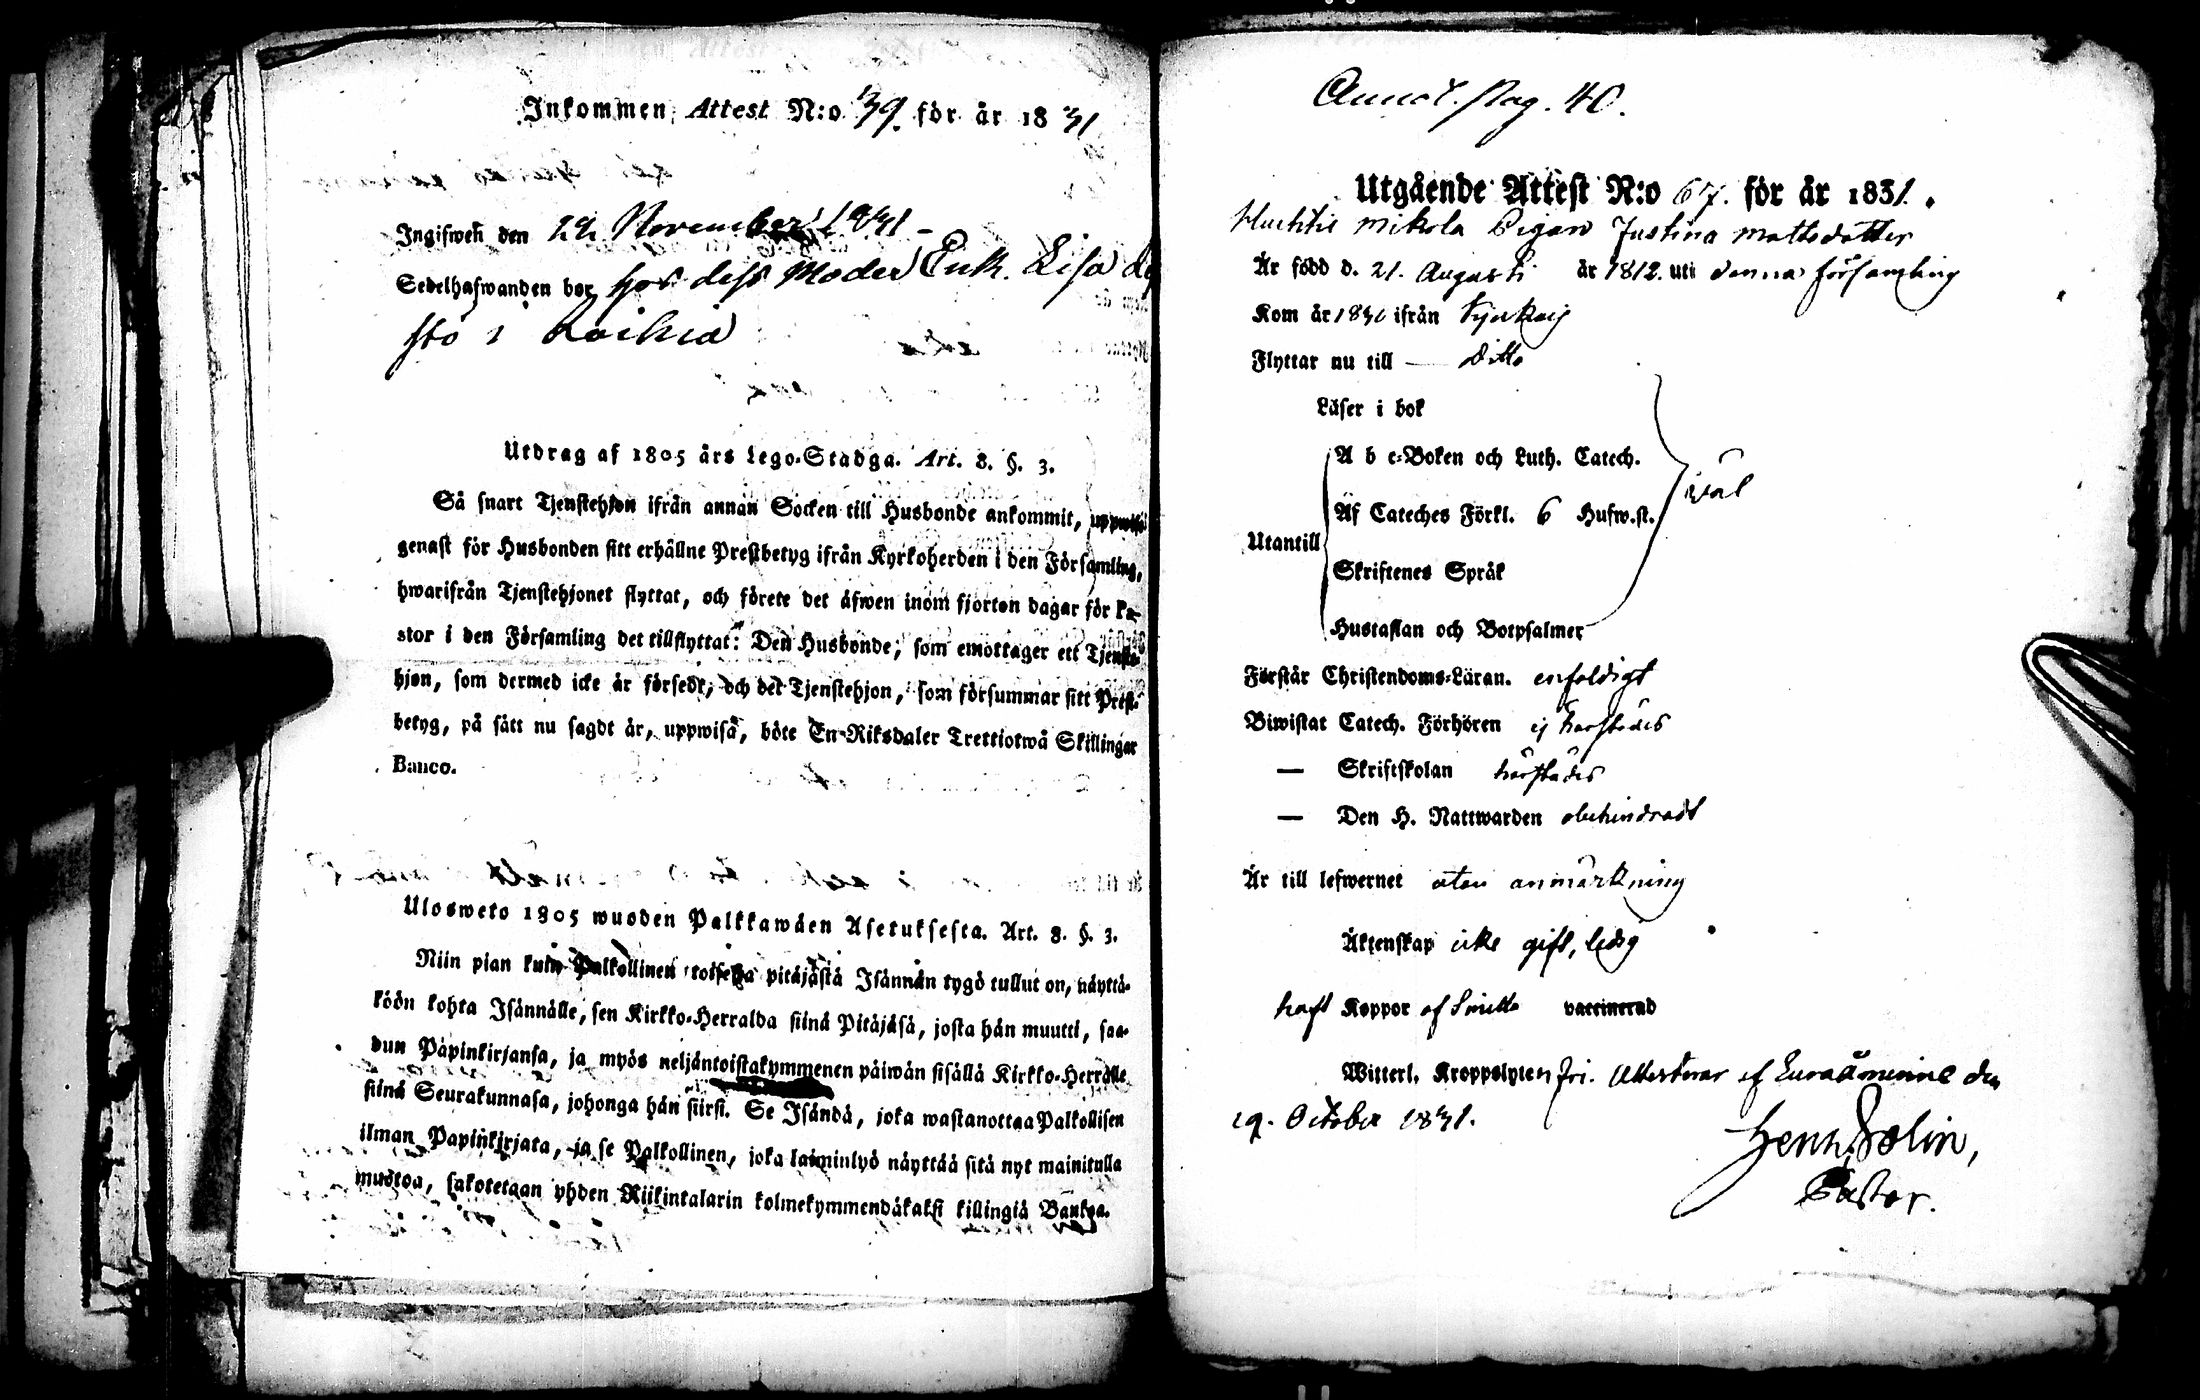 Inkommen Attest N:o 39. för år 1831
Ingifwen den 22 November 1831 –
Sedelhafwanden bor hos dess Moder Enk. Lisa
sto i Laihia
Utdrag af 1805 års Lego-Stadga. Art. 8. §. 3.
Så snart Tjenstehjon ifrån annan Socken till Husbonde ankommit, uppwise
genast för Husbonden sitt erhållne Prestbetyg ifrån Kyrkoherden i den Församling,
hwarifrån Tjenstehjonet flyttat, och förete det äfwen inom fjorton dagar för Pa-
stor i den Församling det tillflyttat: Den Husbonde, som emottager ett Tjenste-
hjon, som dermed icke är försedt, och det Tjenstehjon, som försummar sitt Prest-
betyg, på sätt nu sagdt är, uppwisa, böte En Riksdaler Trettiotwå Skillingar
Banco.
Ulosweto 1805 wuoden Palkkawäen Asetuksesta. Art. 8. §. 3.
Niin pian kuin Palkollinen toisesta pitäjästä Isännän tygö tullut on, näyttä-
köön kohta Isännälle, sen Kirkko-Herralda siinä Pitäjäsä, josta hän muutti, saa-
dun Papinkirjansa, ja myös neljäntoistakymmenen päiwän sisällä Kirkko-Herralle
siinä Seurakunnasa, johonga hän siirsi. Se Isändä, joka wastanottaa Palkollisen
ilman Papinkirjata, ja se Palkollinen, joka laiminlyö näyttää sitä nyt mainitulla
muotoa, sakotetaan yhden Riikintalarin kolmekymmendäkaksi killingiä Bankoa.
Annot. pag. 40.
Utgående Attest N:o 67. för år 1831.
mikola Pigan Justina Mattsdotter
Är född d. 21. Augusti år 1812. uti denna församling
Kom år 1830 ifrån
Flyttar nu till — ditto
Läser i bok
A b c-Boken och Luth. Catech.
väl
Af Cateches Förkl. 6 Hufw.st.
Utantill
Skriftenes Språk
Hustaflan och Botpsalmer
Förstår Christendoms-Läran. enfoldigt
Biwistat Catech. Förhören ej härstädes
— Skriftskolan härstädes
— Den H. Nattwarden obehindradt
Är till lefwernet utan anmärkning
Äktenskap icke gift, ledig
haft Koppor af Smitta vaccinerad
Witterl. Kroppslyten fri. Attesterar af Euraåminne den
19. October 1831.
Henr. Polin,
Pastor.